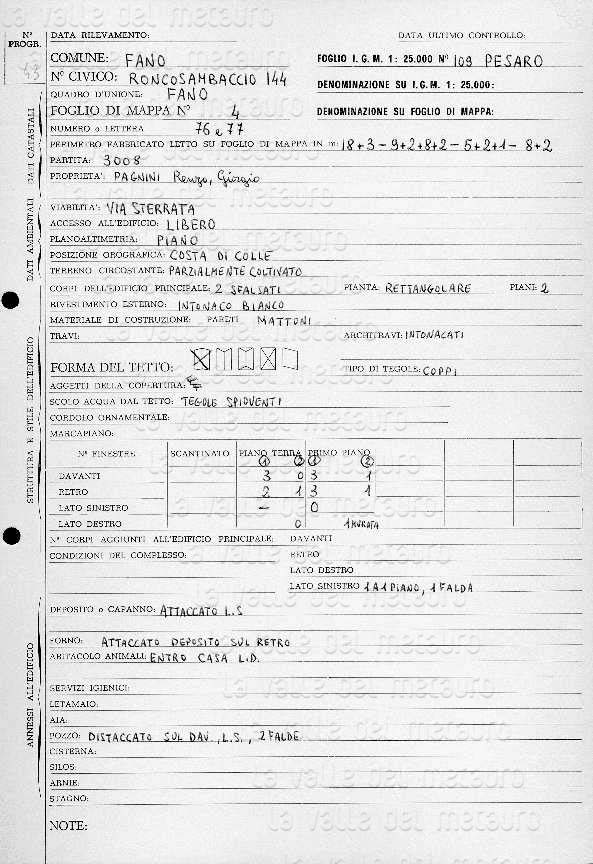 N° PROGR.
43
DATA RILEVAMENTO: DATA ULTIMO CONTROLLO:
COMUNE: FANO FOGLIO I.G.M. 1: 25.000 N° 109 PESARO
N° CIVICO: RONCOSAMBACCIO 144 DENOMINAZIONE SU I.G.M. 1: 25.000:
QUADRO D'UNIONE: FANO
FOGLIO DI MAPPA N° 4 DENOMINAZIONE SU FOGLIO DI MAPPA:
NUMERO o LETTERA 76 e 77
PERIMETRO FABBRICATO LETTO SU FOGLIO DI MAPPA IN m: 18+3-9+2+8+2-5+2+1-8+2
PARTITA: 3008
PROPRIETA': PAGNINI Renzo, Giorgio
DATI CATASTALI
VIABILITA': VIA STERRATA
ACCESSO ALL'EDIFICIO: LIBERO
PLANOALTIMETRIA: PIANO
POSIZIONE OROGRAFICA: COSTA DI COLLE
TERRENO CIRCOSTANTE: PARZIALMENTE COLTIVATO
DATI AMBIENTALI
CORPI DELL'EDIFICIO PRINCIPALE: 2 SFALSATI PIANTA: RETTANGOLARE PIANI: 2
RIVESTIMENTO ESTERNO: INTONACO BIANCO
MATERIALE DI COSTRUZIONE: PARETI MATTONI
TRAVI: ARCHITRAVI: INTONACATI
FORMA DEL TETTO: TIPO DI TEGOLE: COPPI
AGGETTI DELLA COPERTURA:
SCOLO ACQUA DAL TETTO: TEGOLE SPIOVENTI
CORDOLO ORNAMENTALE:
MARCAPIANO:
N° FINESTRE SCANTINATO PIANO TERRA PRIMO PIANO
1 2 1 2
DAVANTI 3 0 3 1
RETRO 2 1 3 1
LATO SINISTRO - 0
LATO DESTRO 0 1 MURATA
STRUTTURA E STILE DELL'EDIFICIO
N° CORPI AGGIUNTI ALL'EDIFICIO PRINCIPALE: DAVANTI
CONDIZIONI DEL COMPLESSO: RETRO
LATO DESTRO
LATO SINISTRO 1 A 1 PIANO, 1 FALDA
DEPOSITO o CAPANNO: ATTACCATO L.S
FORNO: ATTACCATO DEPOSITO SUL RETRO
ABITACOLO ANIMALI: ENTRO CASA L.D.
SERVIZI IGIENICI:
LETAMAIO:
AIA:
POZZO: DISTACCATO SUL DAV., L.S., 2 FALDE
CISTERNA:
SILOS:
ARNIE:
STAGNO:
ANNESSI ALL'EDIFICIO
NOTE:
la valle del metauro